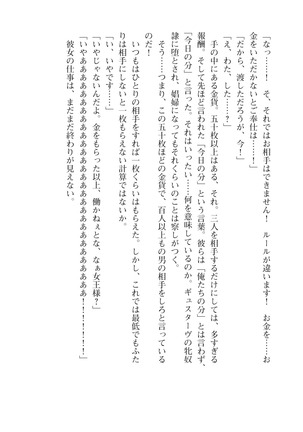 「なっ……！　そ、それではお相手はできません！　ルールが違います！　お金を……お
金をいただかないとご奉仕は……！」
「だから、渡しただろうが、今！」
「え、わた、した……？」
　手の中にある金貨。五十枚以上はある、それ。三人を相手するだけにしては、多すぎる
報酬。そして先ほど言われた「今日の分」という言葉。彼らは「俺たちの分」とは言わず、
「今日の分」と言った。それはいったい……何を意味しているのか。ギュスターヴの牝奴
隷に堕とされ、娼婦になってもそれくらいのことは察しがつく。
　そう……つまり、この五十枚ほどの金貨で、百人以上もの男の相手をしろと言っている
のだ！
　いつもはひとりの相手をすれば一枚くらいはもらえた。しかし、これでは最低でもふた
りは相手にしないと一枚もらえない計算ではないか。
「い、いやです……」
「いやじゃないんだよ。金をもらった以上、働かねぇとな、なぁ女王様？」
「いやあああああああああああああああああああ！！！！！！！」
　彼女の仕事は、まだまだ終わりが見えない。